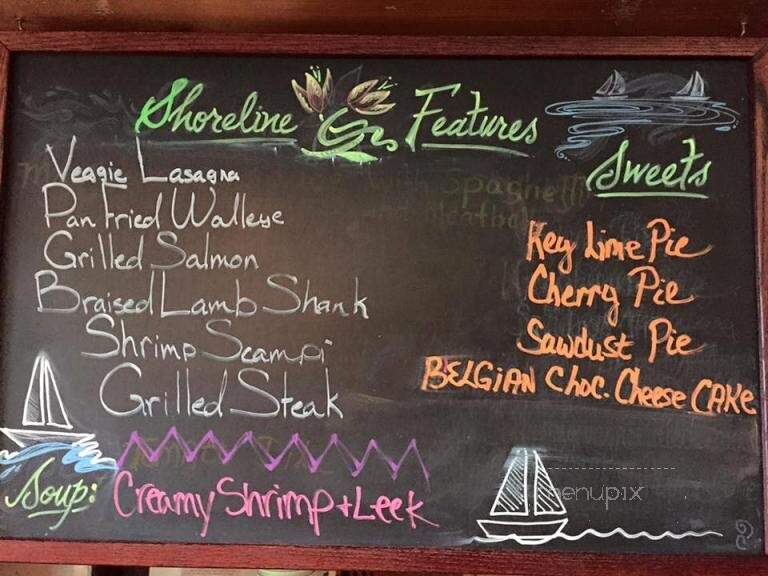 Shoreline Features
Veggie Lasagna
Pan Fried Walleye
Grilled Salmon
Braised Lamb Shank
Shrimp Scampi
Grilled Steak
Soup: Creamy Shrimp + Leek
Sweets
Key Lime Pie
Cherry Pie
Sawdust Pie
BELGIAN CHOC. Cheese CAKE
spaghetti
menupix